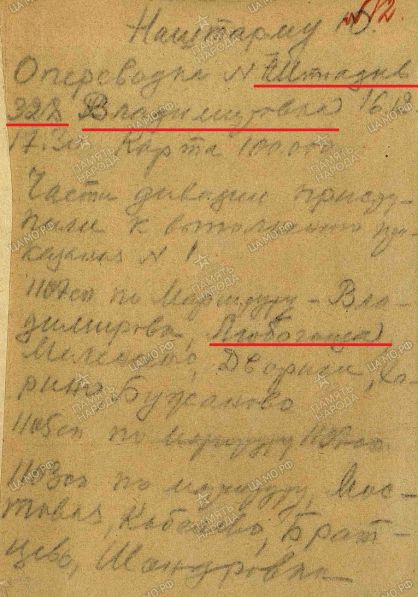 № 12.
Наштарму
Опереводка № Штадив
328 Владимировка 16.12
17.30 Карта 100.000
Части дивизии присту-
пили к выполнению при-
казания № 1
1107сп по Маршруту - Вла-
димировка,
Дворики,
Бужаново
1105сп по маршруту
1103сп по маршруту, Мос-
товая, Кобелево, Брат-
цево, Шандровка